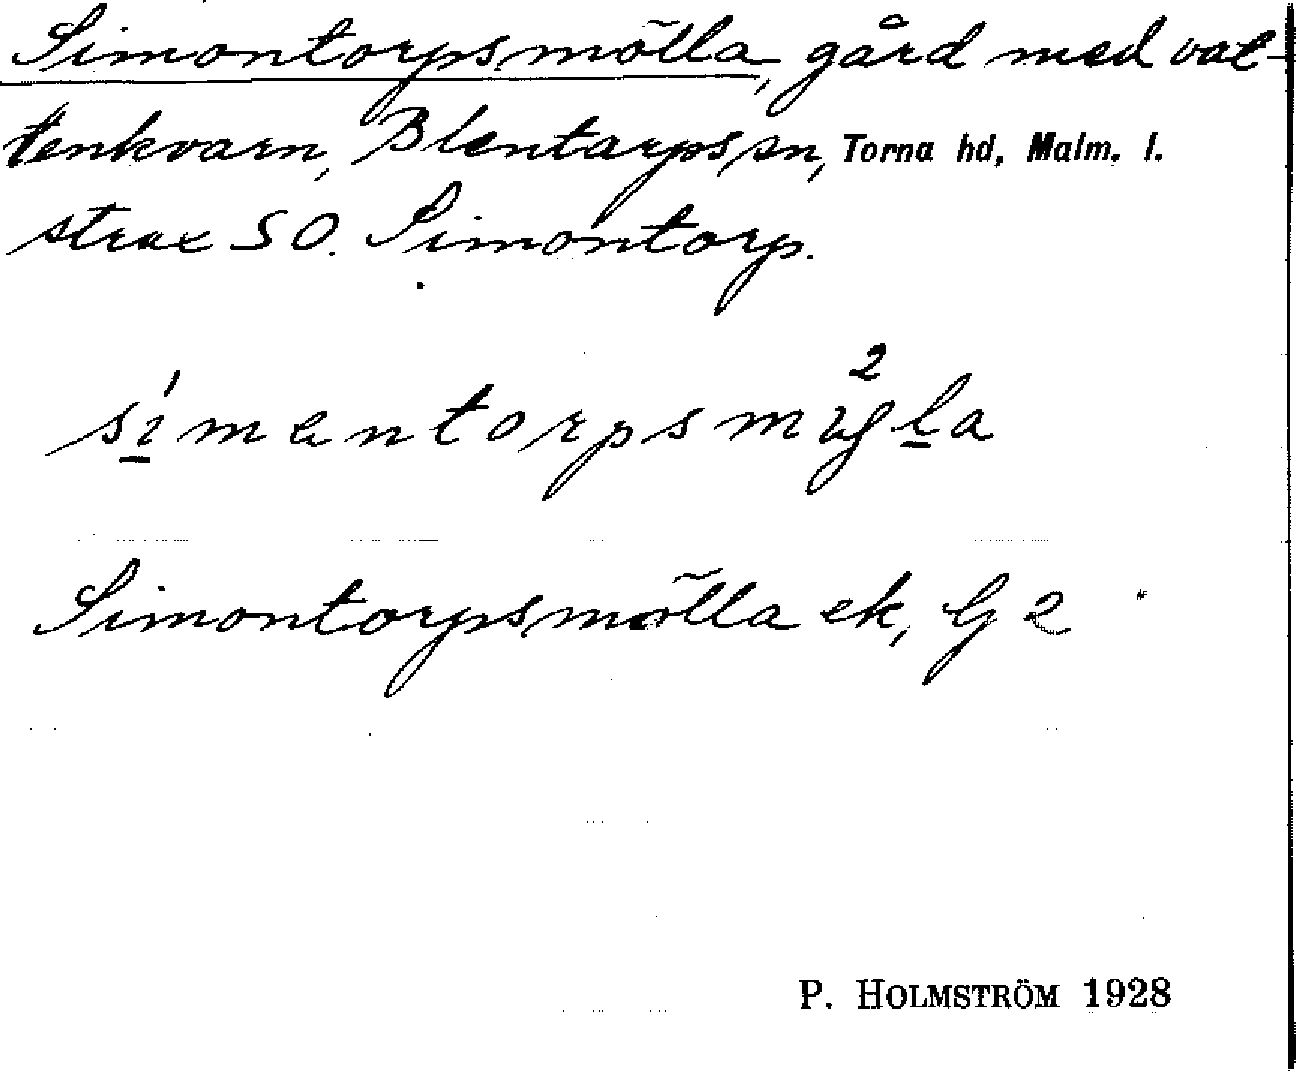 Simontorpsmölla, gård med vat-
tenkvarn, Blentarps sn, Torna hd, Malm. l.
strax SO. Simontorp.
Simontorpsmölla ek, G 2
P. HOLMSTRÖM 1928